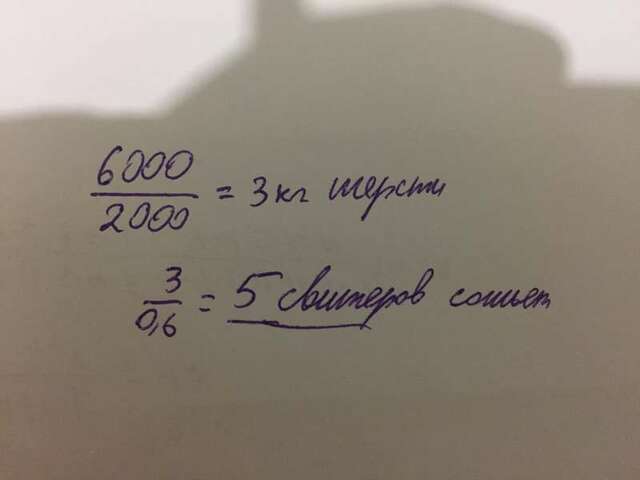 6000/2000 = 3 кг шерсти
3/0,6 = 5 свитеров сошьет